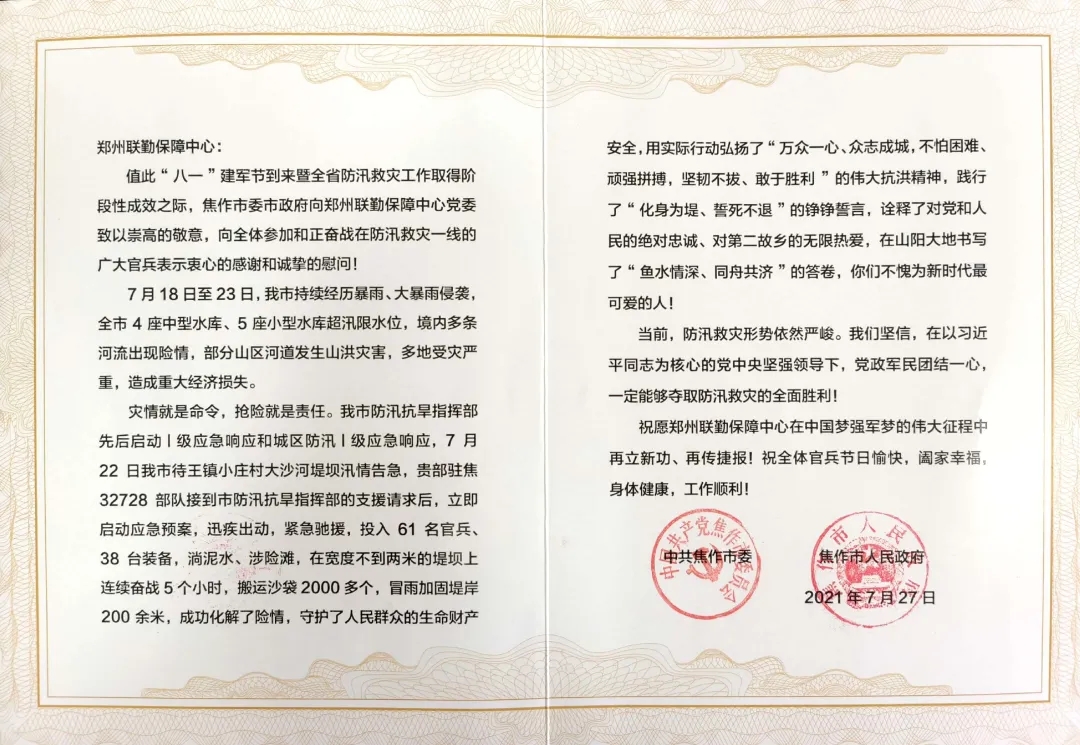 郑州联勤保障中心：
值此“八一”建军节到来暨全省防汛救灾工作取得阶
段性成效之际，焦作市委市政府向郑州联勤保障中心党委
致以崇高的敬意，向全体参加和正奋战在防汛救灾一线的
广大官兵表示衷心的感谢和诚挚的慰问！
7月18日至23日，我市持续经历暴雨、大暴雨侵袭，
全市4座中型水库、5座小型水库超汛限水位，境内多条
河流出现险情，部分山区河道发生山洪灾害，多地受灾严
重，造成重大经济损失。
灾情就是命令，抢险就是责任。我市防汛抗旱指挥部
先后启动Ⅰ级应急响应和城区防汛Ⅰ级应急响应，7月
22日我市待王镇小庄村大沙河堤坝汛情告急，贵部驻焦
32728部队接到市防汛抗旱指挥部的支援请求后，立即
启动应急预案，迅疾出动，紧急驰援，投入61名官兵、
38台装备，淌泥水、涉险滩，在宽度不到两米的堤坝上
连续奋战5个小时，搬运沙袋2000多个，冒雨加固堤岸
200余米，成功化解了险情，守护了人民群众的生命财产
安全，用实际行动弘扬了“万众一心、众志成城，不怕困难、
顽强拼搏，坚韧不拔、敢于胜利”的伟大抗洪精神，践行
了“化身为堤、誓死不退”的铮铮誓言，诠释了对党和人
民的绝对忠诚、对第二故乡的无限热爱，在山阳大地书写
了“鱼水情深、同舟共济”的答卷，你们不愧为新时代最
可爱的人！
当前，防汛救灾形势依然严峻。我们坚信，在以习近
平同志为核心的党中央坚强领导下，党政军民团结一心，
一定能够夺取防汛救灾的全面胜利！
祝愿郑州联勤保障中心在中国梦强军梦的伟大征程中
再立新功、再传捷报！祝全体官兵节日愉快，阖家幸福，
身体健康，工作顺利！
中国共产党焦作市委员会
中共焦作市委
焦作市人民政府
焦作市人民政府
2021年7月27日